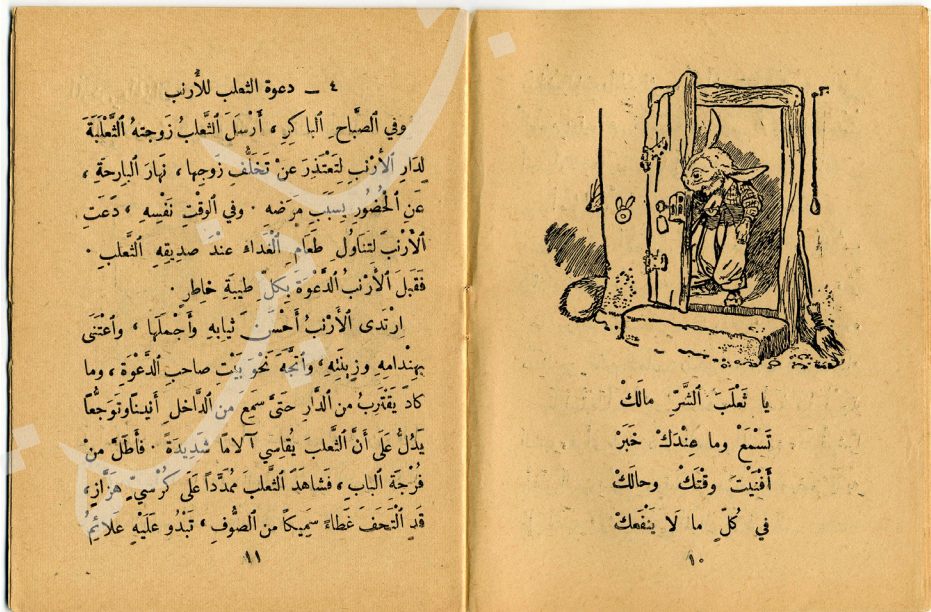 يا ثَعْلَبَ الشَّرِّ مالَكْ
تَسْمَعْ وما عِنْدَكْ خَبَرْ
أَفْنَيْتَ وقْتَكْ وحالَكْ
في كُلِّ ما لَا يَنْفَعكْ
١٠
٤ ــ دعوة الثعلب للأرنب
وفي الصَّباحِ الباكرِ ، أَرْسَلَ الثَّعلبُ زَوجتهُ الثَّعْلَبَةَ
لِدَارِ الأَرْنبِ لتَعْتَذرَ عنْ تَخَلُّفِ زَوجِها ، نَهارَ البارِحةِ ،
عَنِ الحُضُورِ بسَبَبَ مرَضه . وفي الوقْتِ نَفْسِهِ ، دَعَتِ
الأَرْنبَ لتنَاوُلِ طَعَامِ الْغَداءِ عندَ صديِقهِ الثَّعلب .
فَقَبلَ الأَرْنبُ الدَّعْوَةَ بِكلِّ طيبَةِ خاطِرٍ .
ارْتدى الأَرْنبُ أَحْسَنَ ثيابِهِ وأَجْملَها ، واعْتَنَى
بهِنْدامهِ وزِينَتهِ ، واتَّجَهَ نَحْوَ بَيْتِ صاحبِ الدَّعْوَةِ ، وما
كادَ يَقْتَرِبُ منَ الدَّارِ حتَّى سَمِعَ منَ الدَّاخلِ أَنيناً وتَوَجُّعاً
يَدُلُّ عَلَى أَنَّ الثَّعلبَ يُقاسي آلاماً شَدِيدَةً . فأَطَلَّ منْ
فُرْجَةِ البابِ ، فَشاهَدَ الثَّعلبَ مُمَدَّداً عَلَى كُرْسيٍّ هَزَّازٍ ،
قَدِ الْتَحَفَ غَطاءً سَمِيكاً منَ الصُّوفِ ، تَبْدُو عَلَيْهِ علائِمُ
١١